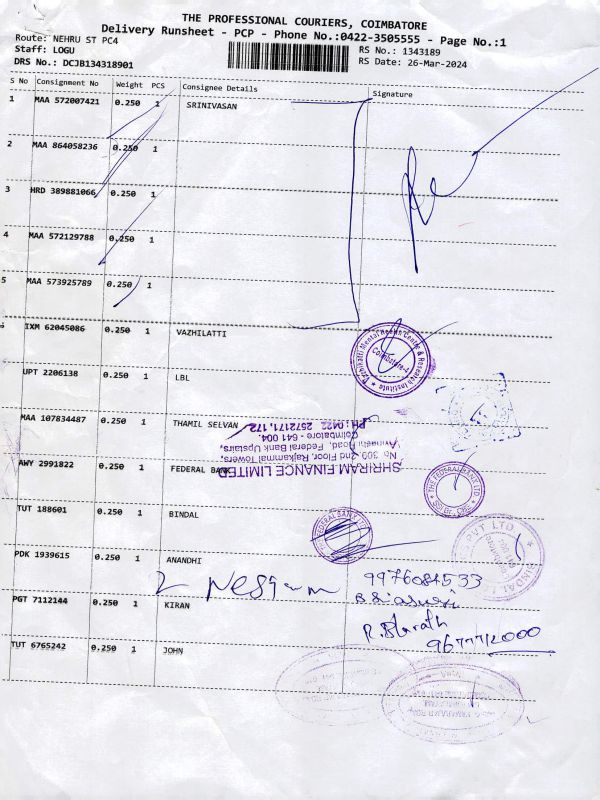 THE PROFESSIONAL COURIERS, COIMBATORE
Delivery Runsheet - PCP - Phone No.:0422-3505555 - Page No.:1
Route: NEHRU ST PC4
Staff: LOGU
DRS No.: DCJB134318901
RS No.: 1343189
RS Date: 26-Mar-2024
S No Consignment No Weight PCS Consignee Details Signature
1 MAA 572007421 0.250 1 SRINIVASAN
2 MAA 864058236 0.250 1
3 HRD 389881066 0.250 1
4 MAA 572129788 0.250 1
5 MAA 573925789 0.250 1
6 IXM 62045086 0.250 1 VAZHILATTI
UPT 2206138 0.250 1 LBL
MAA 107834487 0.250 1 THAMIL SELVAN
SHRIRAM FINANCE LIMITED
No 309, 2nd Floor, Rajkammal Towers,
Avinashi Road, Federal Bank Upstairs,
Coimbatore - 641 004.
PH: 0422 2572171, 172
AWY 2991822 0.250 1 FEDERAL BANK
THE FEDERAL BANK LTD.
TUT 188601 0.250 1 BINDAL
FEDERAL BANK LTD
PVT LTD
PDK 1939615 0.250 1 ANANDHI
9976084533
PGT 7112144 0.250 1 KIRAN
R. Bharath
9677712000
TUT 6765242 0.250 1 JOHN